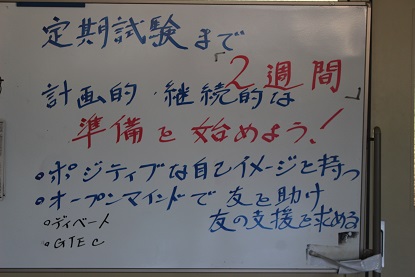 定期試験まで
2週間
計画的・継続的な
準備を始めよう!
・ポジティブな自己イメージを持つ
・オープンマインドで 友を助け
友の支援を求める
・ディベート
・GTEC